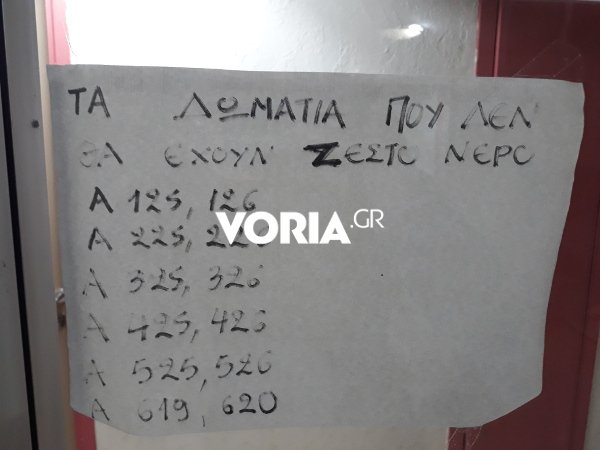 ΤΑ ΔΩΜΑΤΙΑ ΠΟΥ ΔΕΝ
ΘΑ ΕΧΟΥΝ ΖΕΣΤΟ ΝΕΡΟ
Α 125, 126
VORIA.GR
Α 225,
Α 325, 326
Α 425, 426
Α 525, 526
Α 619, 620